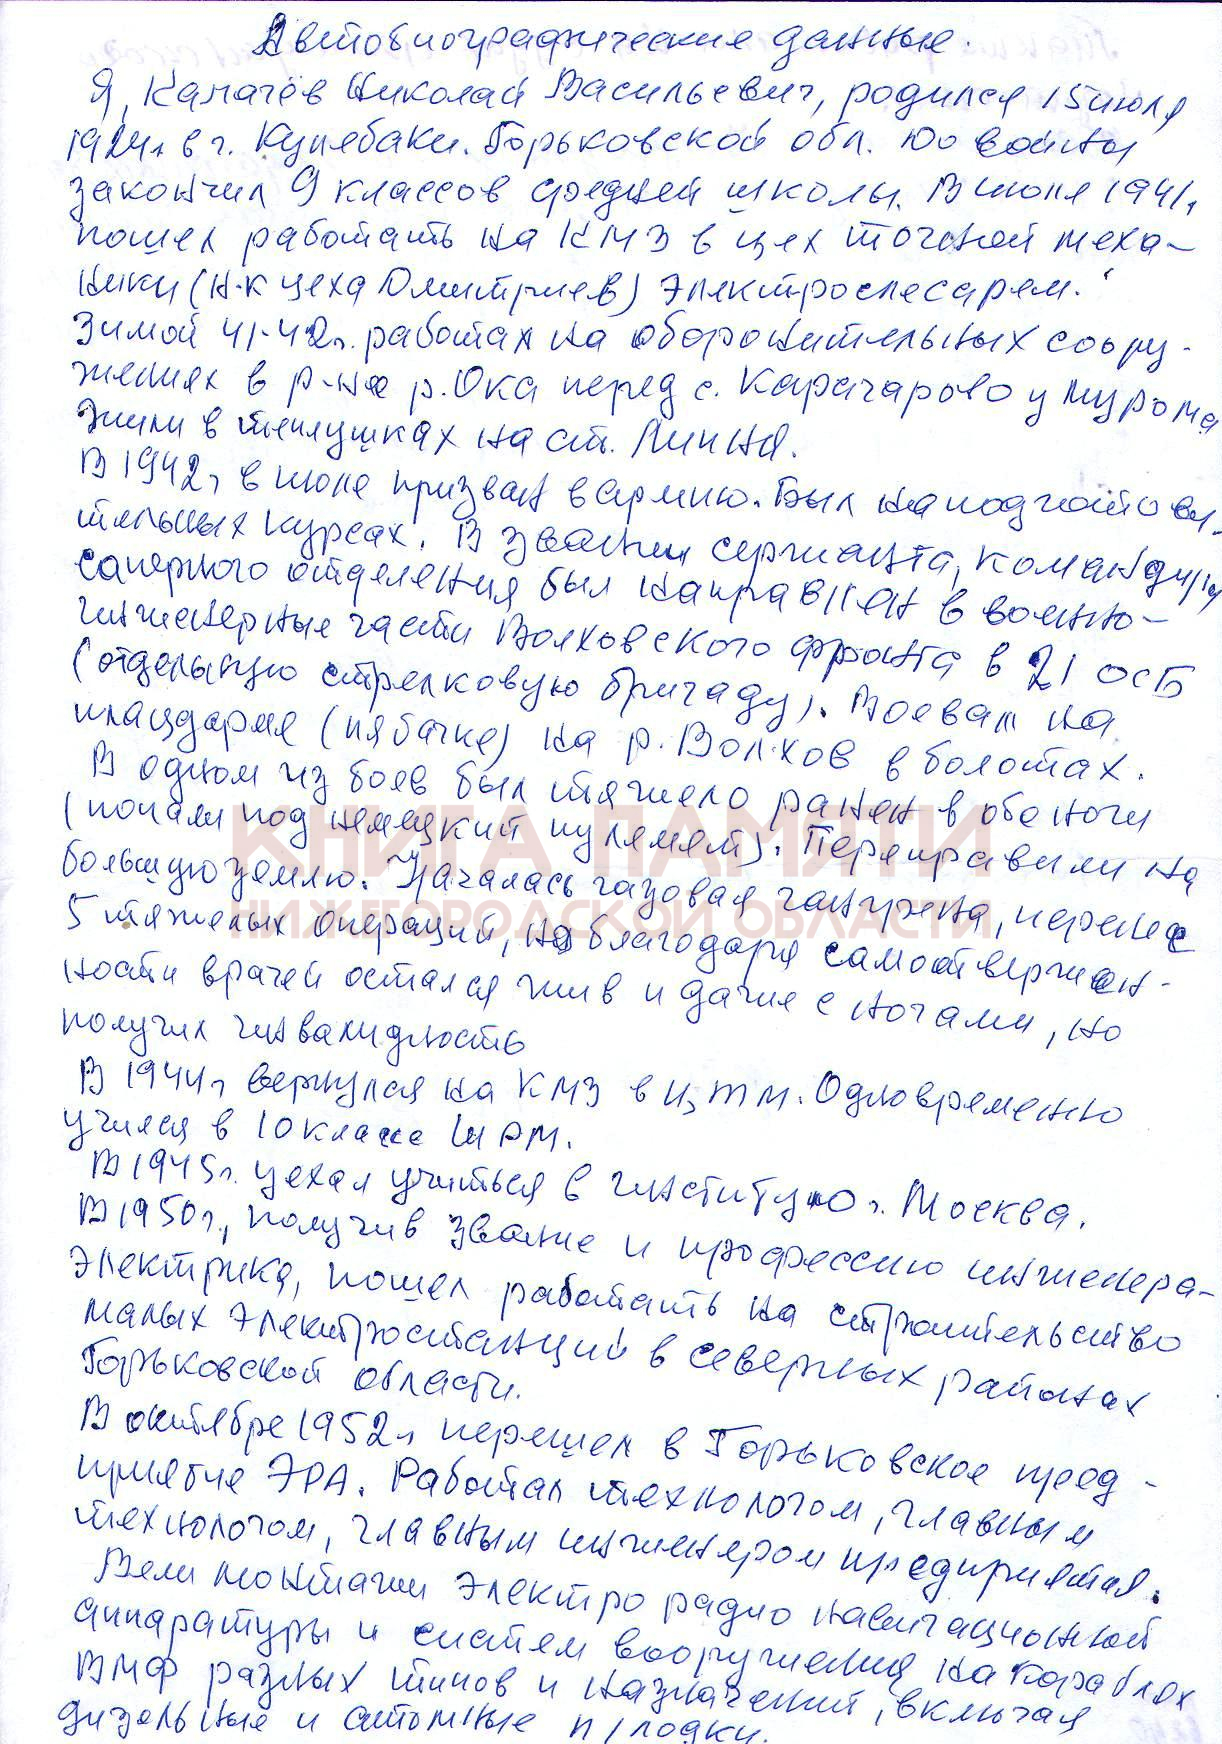 Автобиографические данные.
Я, Калачёв Николай Васильевич, родился 15 июля
1924г. в г. Кулебаки. Горьковской обл. До войны
закончил 9 классов средней школы. В июле 1941г.
пошел работать на КМЗ в цех точной меха-
ники (н-к цеха Дмитриев) электрослесарем.
Зимой 41-42г. работал на оборонительных соору-
жениях в р-не р. Ока перед с. Карачарово у Мурома
Жили в теплушках на ст. Липня.
В 1942г. в июле призван в армию. Был на подготови-
тельных курсах. В звании сержанта, командира
саперного отделения был направлен в военно-
инженерные части Волховского фронта в 21 ОСБ
(отдельную стрелковую бригаду). Воевал на
плацдарме (пятачке) на р. Волхов в болотах.
В одном из боев был тяжело ранен в обе ноги
(попали под немецкий пулемет). Переправили на
большую землю. Началась газовая гангрена, перенес
5 тяжелых операций, но благодаря самоотвержен-
ности врачей остался жив и даже с ногами, но
получил инвалидность
В 1944г. вернулся на КМЗ в ц. т м. Одновременно
учился в 10 классе ШРМ.
В 1945г. уехал учиться в институт г. Москва.
В 1950г., получив звание и профессию инженера-
электрика, пошел работать на строительство
малых электростанций в северных районах
Горьковской области.
В октябре 1952г. перешел в Горьковское пред-
приятие ЭРА. Работал технологом, главным
технологом, главным инженером предприятия.
Вели монтажи электро радио навигационной
аппаратуры и систем вооружения на кораблях
ВМФ разных типов и назначений, включая
дизельные и атомные п/лодки.
КНИГА ПАМЯТИ
НИЖЕГОРОДСКОЙ ОБЛАСТИ